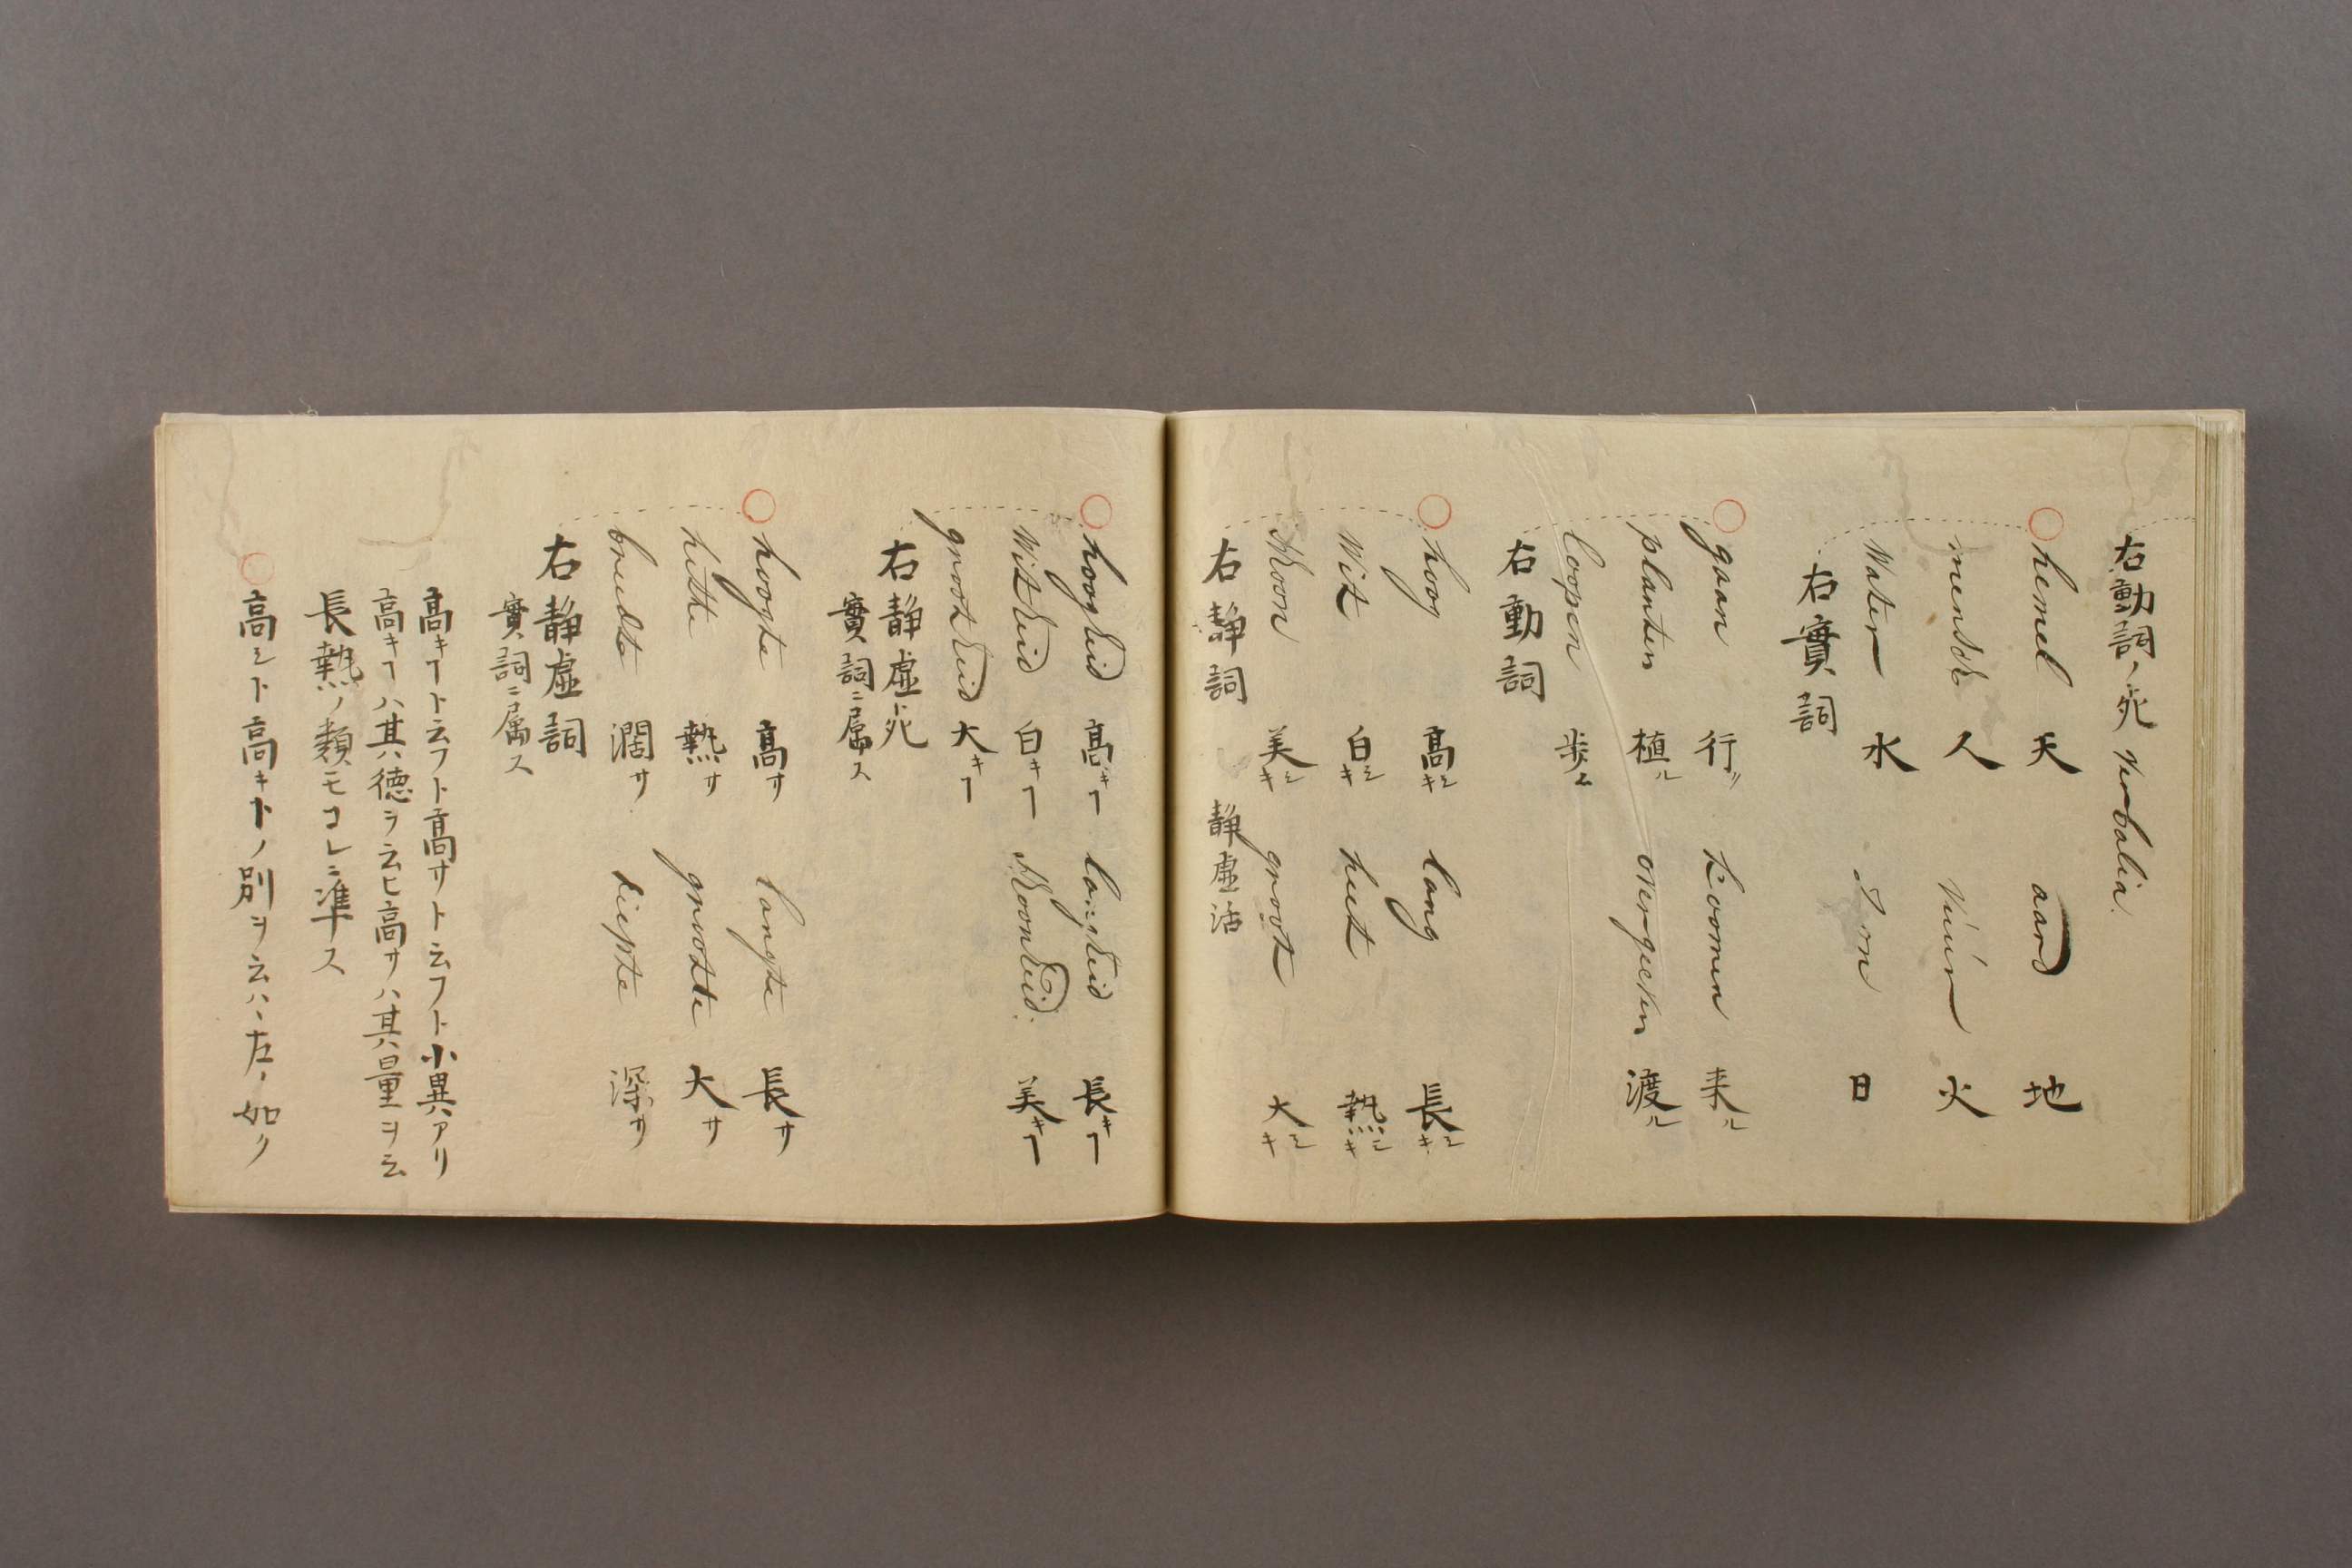 右動詞ノ死 Verbalia.
hemel 天 aard 地
mensch 人 vuur 火
Water 水 Zon 日
右實詞
gaan 行ク koomen 来ル
planten 植ル overgeeven 渡ル
loopen 歩ム
右動詞
hoog 高シキ lang 長シキ
Wit 白シキ heet 熱シキ
schoon 美シキ groot 大シキ
右静詞 静虚活
hoogheid 高キヿ langheid 長キヿ
Witheid 白キヿ schoonheid 美キヿ
grootheid 大キヿ
右静虚死
實詞ニ属ス
hoogte 高サ langte 長サ
hitte 熱サ grootte 大サ
breedte 濶サ diepte 深サ
右静虚詞
實詞ニ属ス
高キヿト云フト高サト云フト小異アリ
高キヿハ其徳ヲ云ヒ高サハ其量ヲ云
長熱ノ類モコレニ準ス
高シト高キトノ別ヲ云ハヽ左ノ如ク